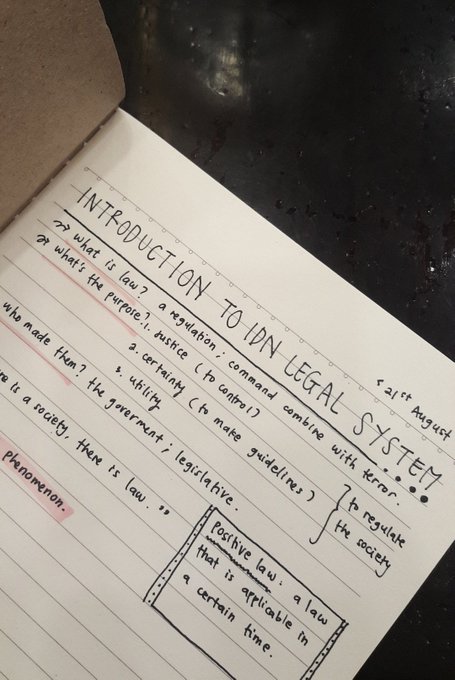 INTRODUCTION TO IDN LEGAL SYSTEM
21st August
what is law? a regulation; command combine with terror.
what's the purpose? 1. Justice (to control)
2. certainty (to make guidelines)
3. utility
to regulate
the society
who made them? the goverment; legislative.
is a society, there is law."
phenomenon.
Positive law: a law
that is applicable in
a certain time.